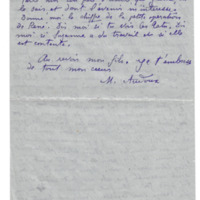 je sais et dont l'avenir m'intéresse.
Donne moi le chiffre de la petite opération
de René. Dis moi si tu vois les
moi si Suzanne a du travail et si elle
est contente.
Au revoir mon fils, je t'embrasse
de tout mon cœur
M.